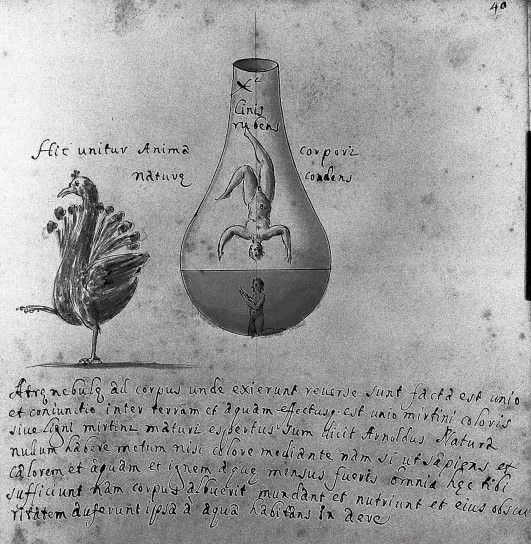 40
Cinis
rubens
Hic unitur Anima corpori
naturę condens
Atrę nebulę ad corpus unde exierunt reverse sunt facta est unio
et coniunctio inter terram et aquam effectusq; est unio mirtini coloris
sive ligni mirtini maturi expertus sum dicit Arnoldus Natura
nulum habere motum nisi calore mediante nam si ut sapiens et
calorem et aquam et ignem aque mensus fueris omnia hęc tibi
sufficiunt nam corpus albuerit mundant et nutriunt et eius obscu
ritatem auferunt ipsa aqua habitans in aere